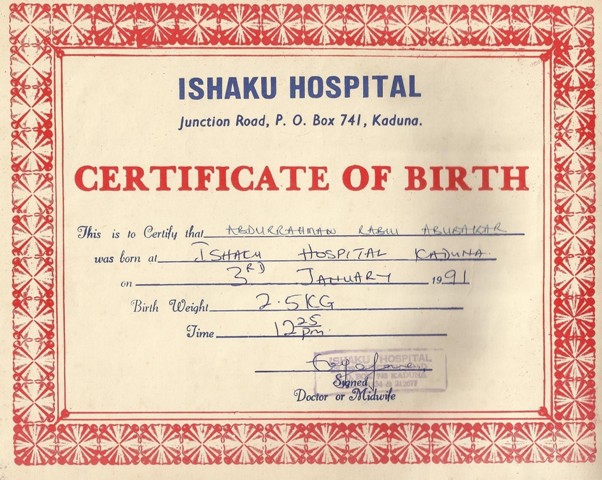 ISHAKU HOSPITAL
Junction Road, P. O. Box 741, Kaduna.
CERTIFICATE OF BIRTH
This is to Certify that ABDURRAHMAN RABIU ABUBAKAR
was born at ISHAKU HOSPITAL KADUNA
on 3RD JANUARY 1991
Birth Weight 2.5KG
Time 12 25 pm
ISHAKU HOSPITAL
KADUNA
Signed
Doctor or Midwife